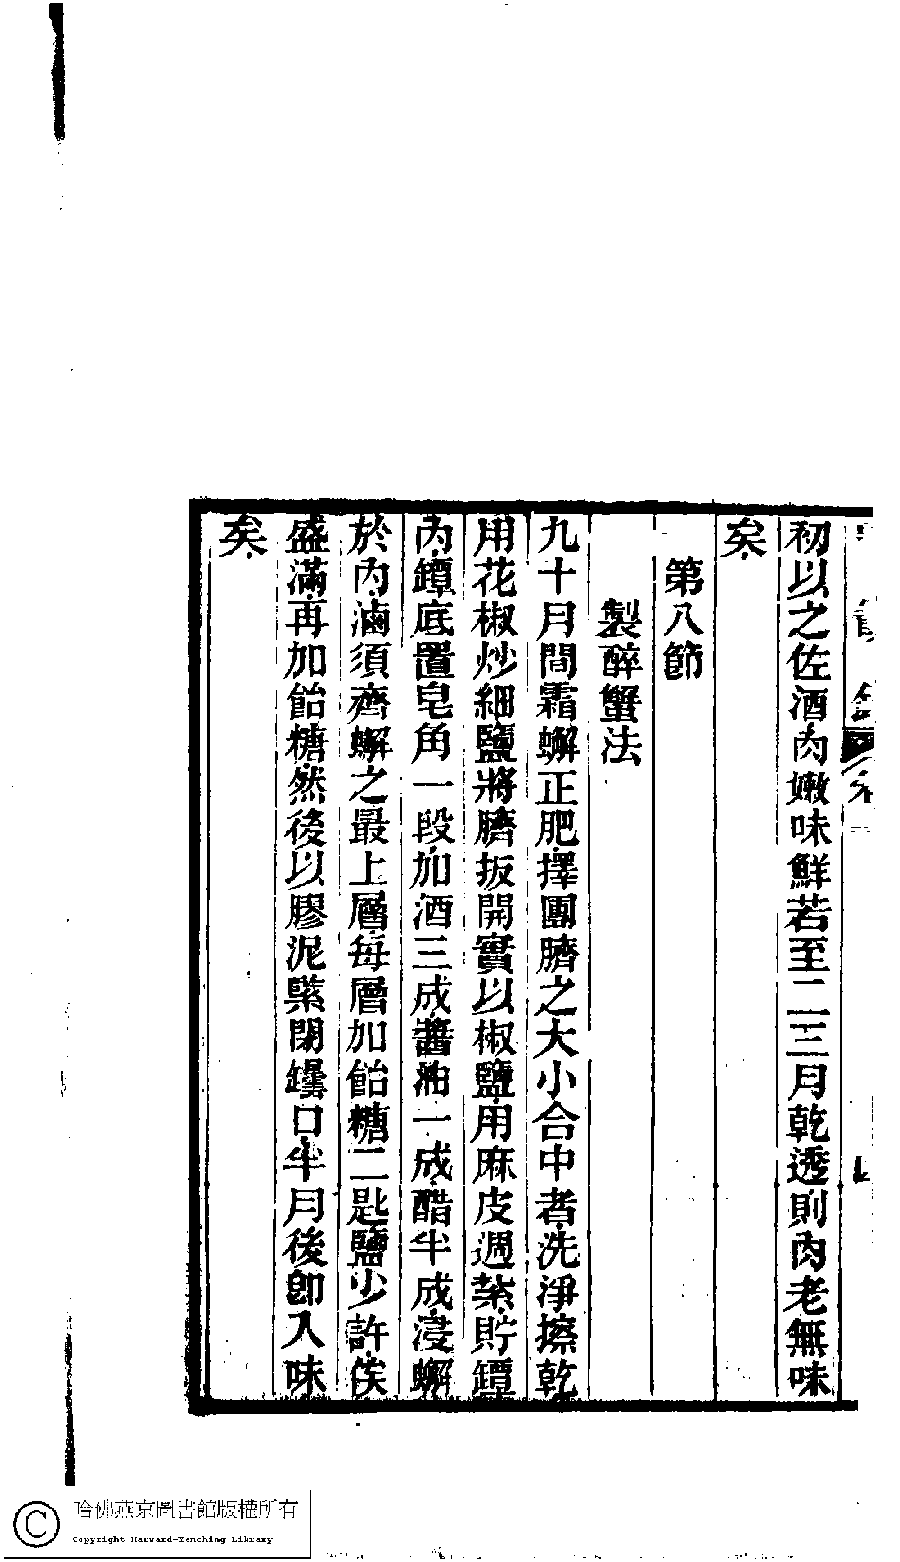 初以之佐酒肉嫩味鮮若至二三月乾透則肉老無味
矣
第八節
製醉蟹法
九十月間霜蠏正肥擇團臍之大小合中者洗淨擦乾
用花椒炒細鹽將臍扳開實以椒鹽用麻皮週紮貯罈
內罈底置皂角一段加酒三成醬油一成醋半成浸蠏
於內滷須齊蠏之最上層每層加飴糖二匙鹽少許俟
盛滿再加飴糖然後以膠泥緊閉罈口半月後卽入味
矣
哈佛燕京圖書館版權所有
Copyright Harvard-Yenching Library